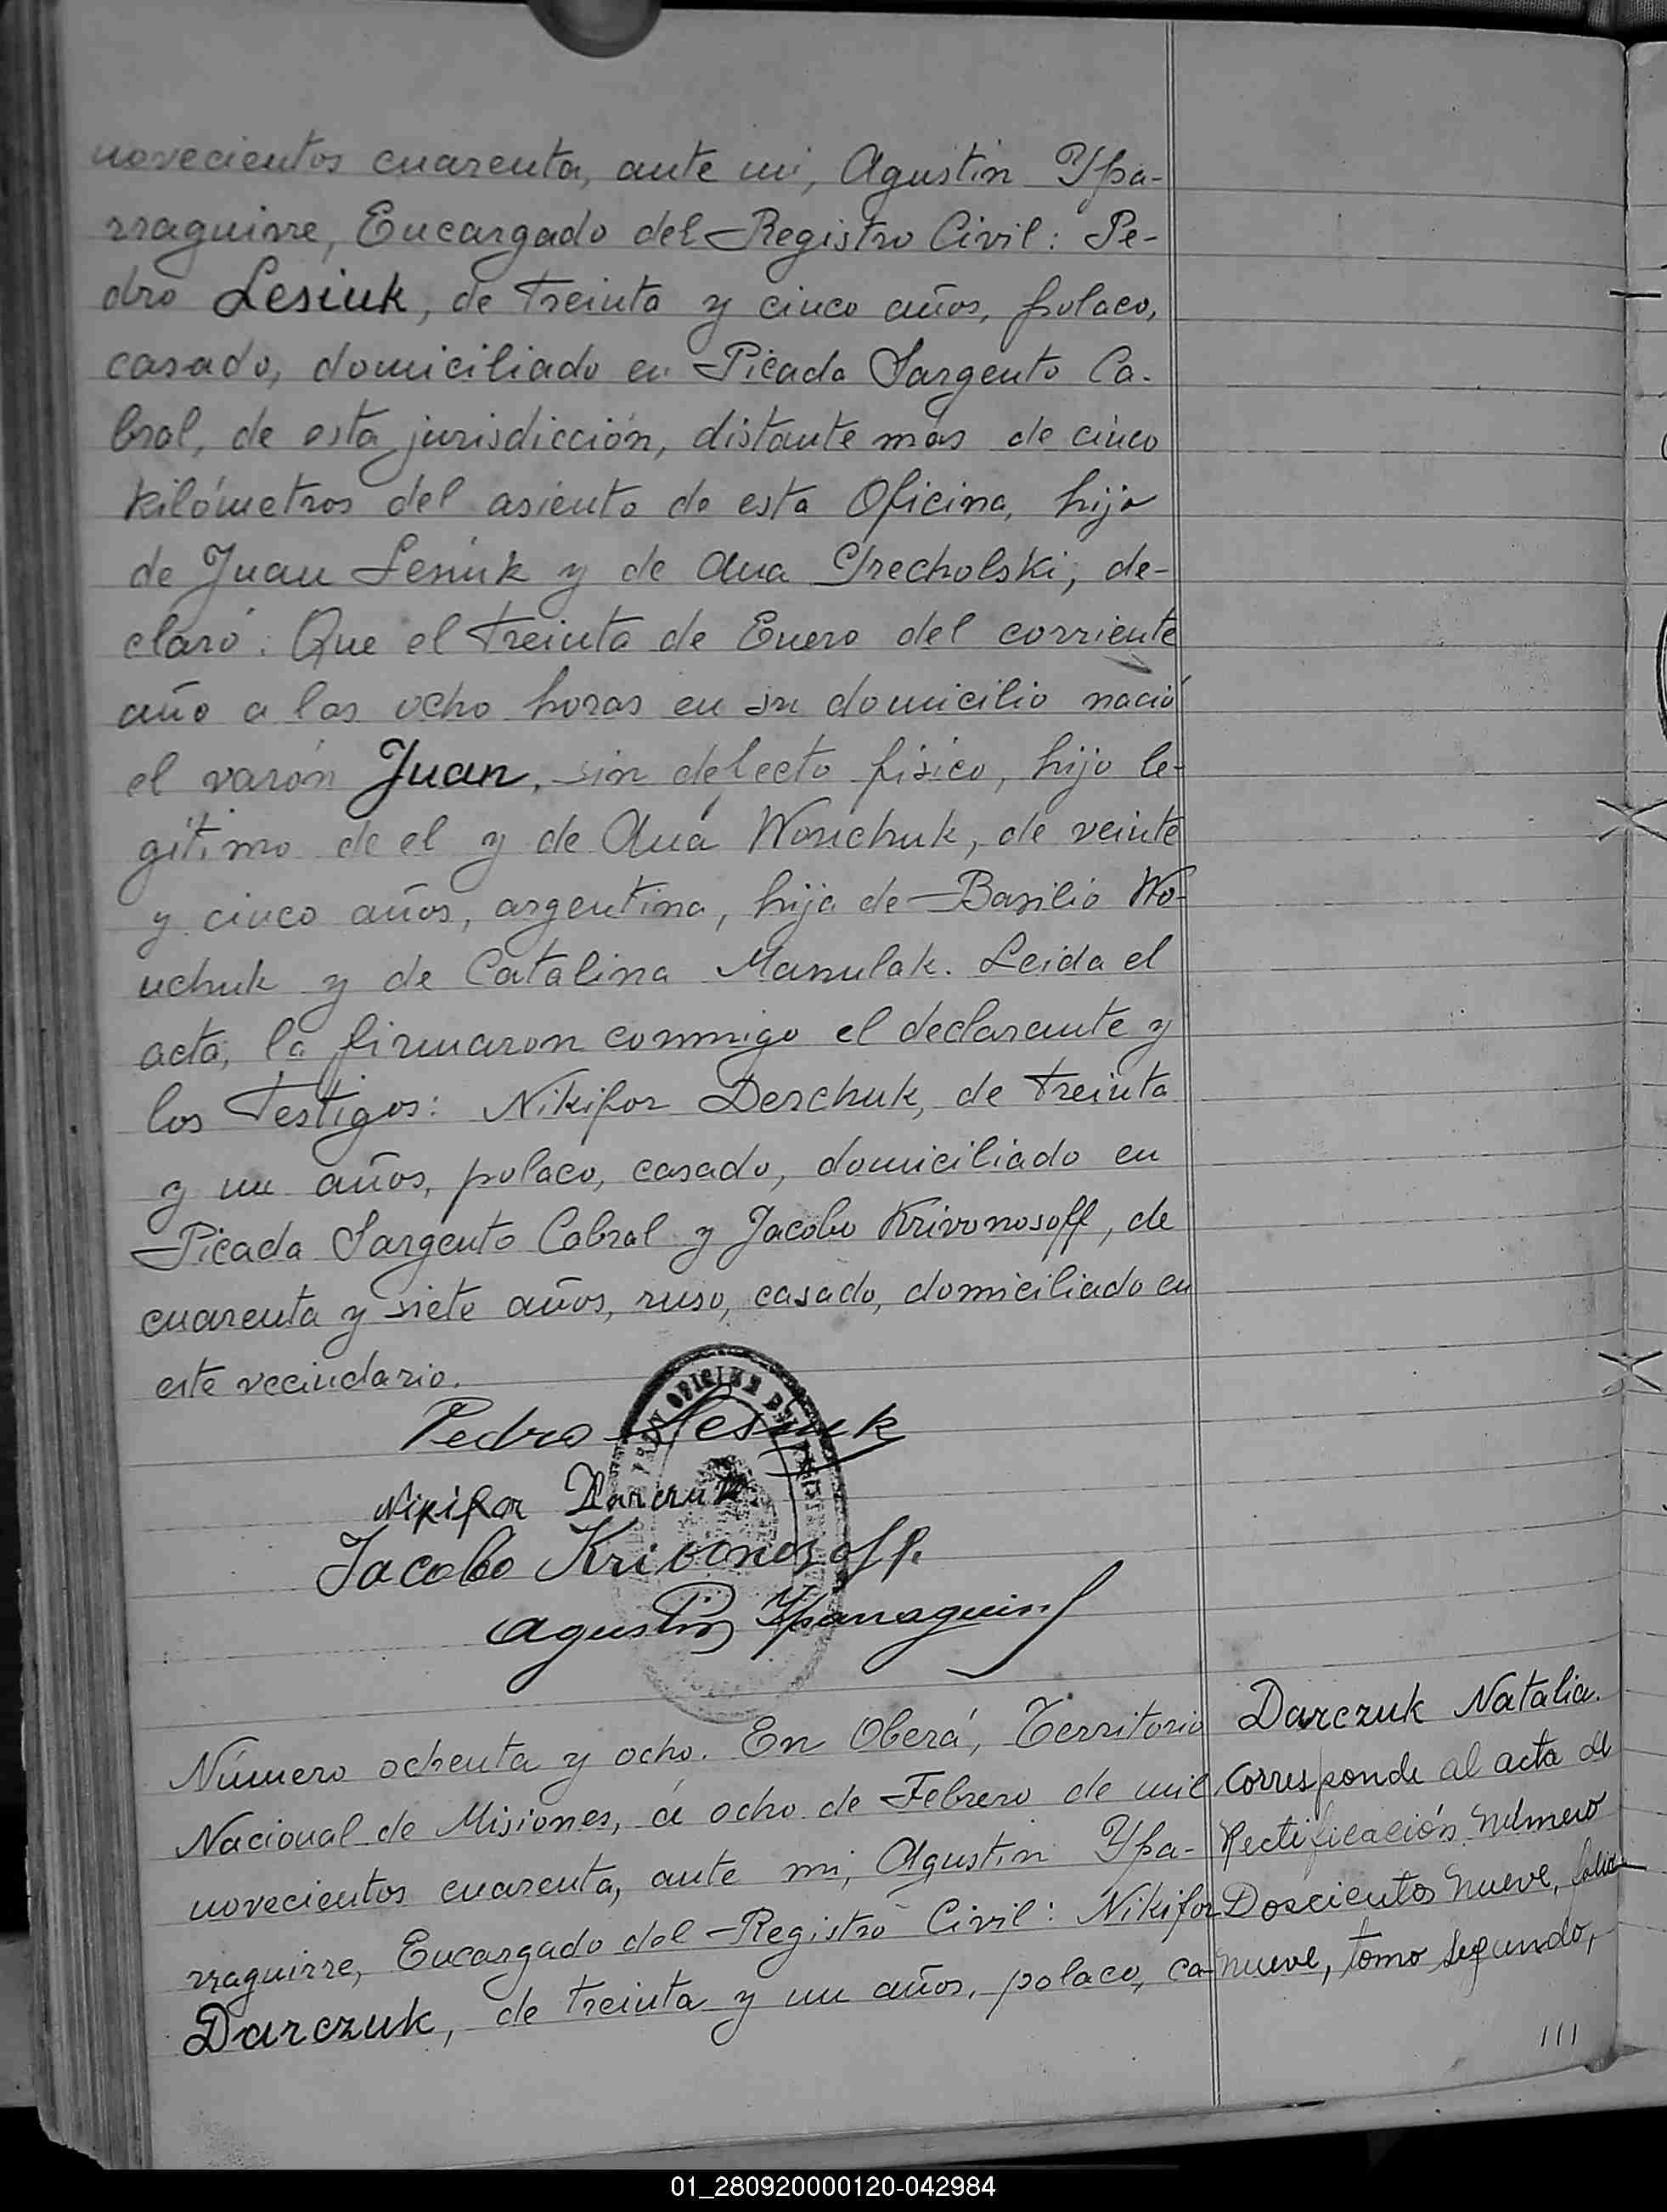 novecientos cuarenta, ante mi, Agustin Ypa-
rraguirre, Encargado del Registro Civil: Pe-
dro Lesiuk, de treinta y cinco años, polaco,
casado, domiciliado en Picada Sargento Ca-
bral, de esta jurisdicción, distante mas de cinco
kilómetros del asiento de esta Oficina, hijo
de Juan Lesiuk y de Ana Grecholski, de-
claró: Que el treinta de Enero del corriente
año a las ocho horas en su domicilio nació
el varón Juan, sin defecto fisico, hijo le-
gitimo de el y de Ana Wonchuk, de veinte
y cinco años, argentina, hija de Basilio Wo-
nchuk y de Catalina Manulak. Leida el
acta, la firmaron conmigo el declarante y
los testigos: Nikifor Derchuk, de treinta
y un años, polaco, casado, domiciliado en
Picada Sargento Cabral y Jacobo Krivonosoff, de
cuarenta y siete años, ruso, casado, domiciliado en
este vecindario.
Pedro Lesiuk
Nikifor Darczuk
Jacobo Krivonosoff.
Agustin Yparraguirre
Número ochenta y ocho. En Oberá, Territorio
Nacional de Misiones, á ocho de Febrero de mil
novecientos cuarenta, ante mi, Agustin Ypa-
rraguirre, Encargado del Registro Civil: Nikifor
Darczuk, de treinta y un años, polaco, ca-
Darczuk Natalia.
Corresponde al acta de
Rectificación número
Doscientos nueve, folio
nueve, tomo segundo,
111
01_280920000120-042984